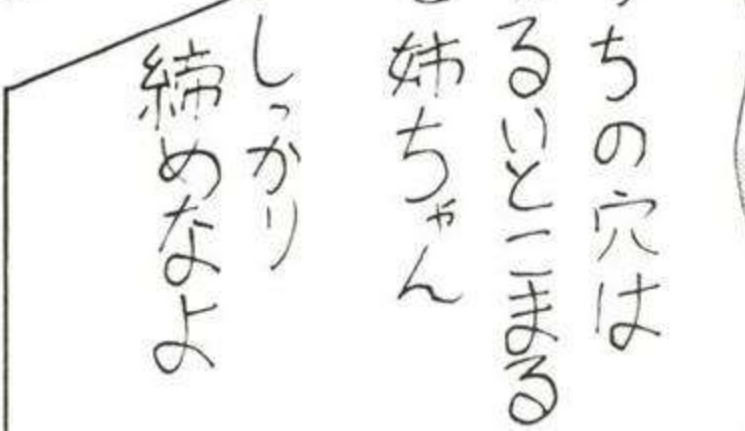 ちの穴は
るいとこまる
姉ちゃん
しっかり
締めなよ